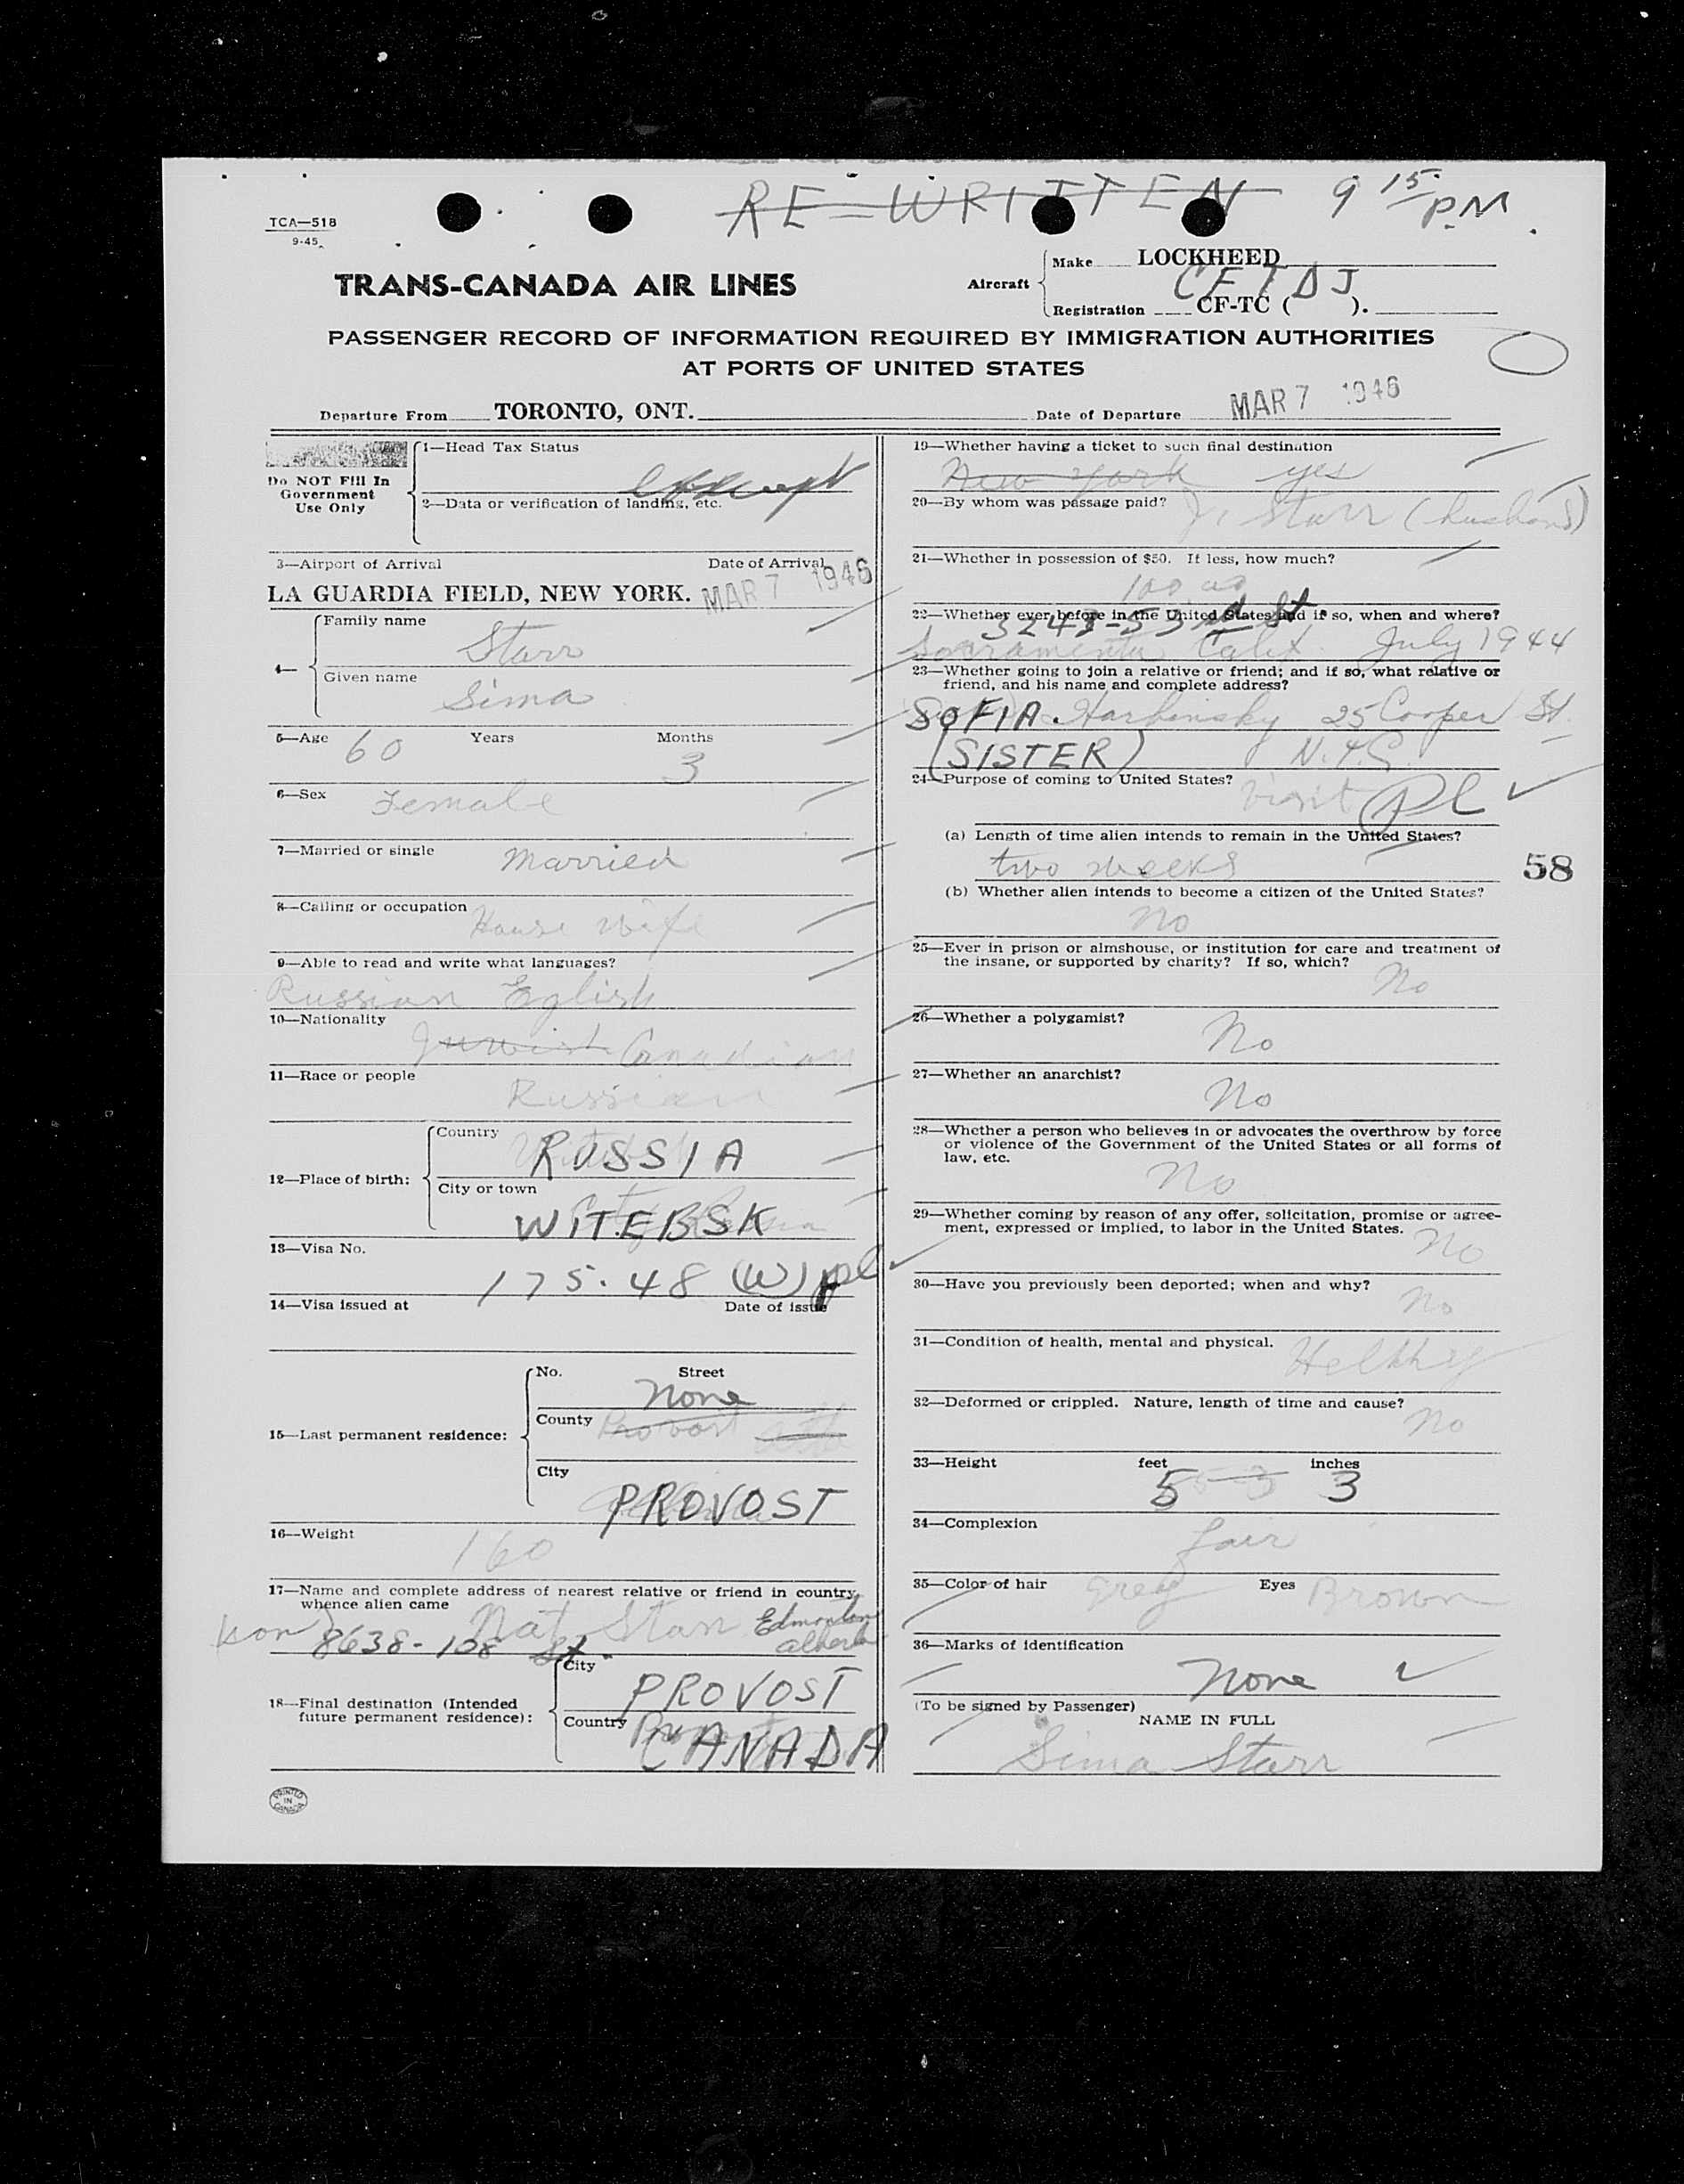 RE-WRITTEN 9 15 P.M
TCA—518
9-45
TRANS-CANADA AIR LINES
Aircraft
Make LOCKHEED
CFTDJ
Registration CF-TC ( ).
PASSENGER RECORD OF INFORMATION REQUIRED BY IMMIGRATION AUTHORITIES
AT PORTS OF UNITED STATES
Departure From TORONTO, ONT. Date of Departure MAR 7 1946
Do NOT Fill In
Government
Use Only
1—Head Tax Status
2—Data or verification of landing, etc.
3—Airport of Arrival Date of Arrival
LA GUARDIA FIELD, NEW YORK. MAR 7 1946
4—
Family name
Starr
Given name
Sima
5—Age 60 Years Months 3
6—Sex Female
7—Married or single Married
8—Calling or occupation House wife
9—Able to read and write what languages?
Russian Eglish
10—Nationality
Jewish Canadian
11—Race or people
Russian
12—Place of birth:
Country
RUSSIA
City or town
WITEBSK
13—Visa No.
175.48 (W) pl
14—Visa issued at Date of issue
15—Last permanent residence:
No. Street
None
County Provost Alta
City
PROVOST
16—Weight 160
17—Name and complete address of nearest relative or friend in country
whence alien came
Son Nat Starr Edmonton
8638-108 St. Alberta
18—Final destination (Intended
future permanent residence):
City
PROVOST
Country
CANADA
PRINTED
IN
CANADA
19—Whether having a ticket to such final destination
New York yes
20—By whom was passage paid?
J. Starr (husband)
21—Whether in possession of $50. If less, how much?
100.00
22—Whether ever before in the United States and if so, when and where?
3243-53rd St
Sacramento Calif. July 1944
23—Whether going to join a relative or friend; and if so, what relative or
friend, and his name and complete address?
SOFIA Harbinsky 25 Cooper St.
(SISTER) N.Y.C.
24—Purpose of coming to United States?
visit pl
(a) Length of time alien intends to remain in the United States?
two weeks
58
(b) Whether alien intends to become a citizen of the United States?
No
25—Ever in prison or almshouse, or institution for care and treatment of
the insane, or supported by charity? If so, which?
No
26—Whether a polygamist?
No
27—Whether an anarchist?
No
28—Whether a person who believes in or advocates the overthrow by force
or violence of the Government of the United States or all forms of
law, etc.
No
29—Whether coming by reason of any offer, solicitation, promise or agree-
ment, expressed or implied, to labor in the United States.
No
30—Have you previously been deported; when and why?
No
31—Condition of health, mental and physical.
Helthy
32—Deformed or crippled. Nature, length of time and cause?
No
33—Height feet inches
5 3
34—Complexion
fair
35—Color of hair Grey Eyes Brown
36—Marks of identification
None
(To be signed by Passenger)
NAME IN FULL
Sima Starr